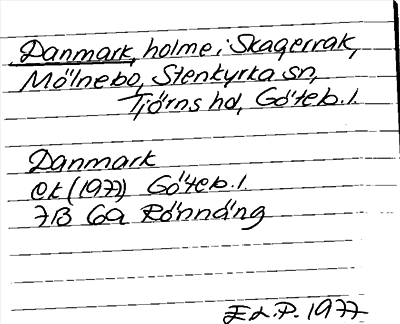 Danmark, holme i Skagerrak,
Mölnebo, Stenkyrka sn,
Tjörns hd, Göteb. l.
Danmark
ek (1977) Göteb. l.
7B 6a Rönnäng
E L.P. 1977